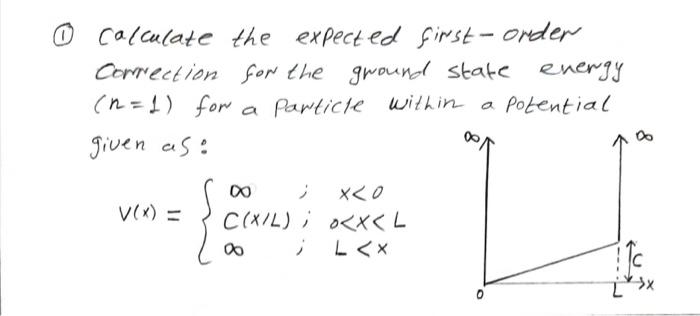 ① Calculate the expected first-order
Correction for the ground state energy
(n=1) for a Particle within a Potential
given as:
V(x) = { ∞ ; x<0
C(x/L) ; 0<x<L
∞ ; L<x
∞ ∞
C
0 L x